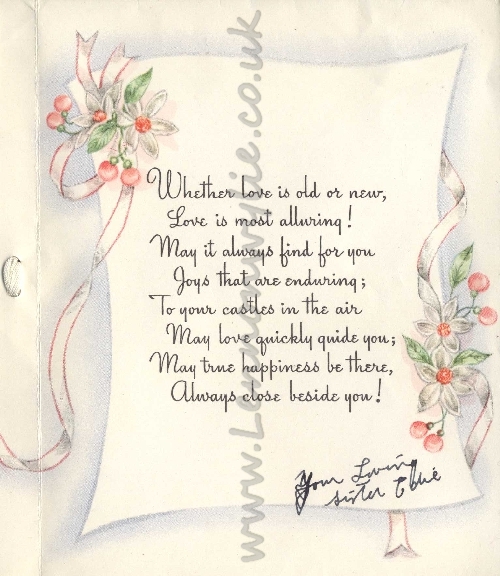 Whether love is old or new,
Love is most alluring!
May it always find for you
Joys that are enduring;
To your castles in the air
May love quickly guide you;
May true happiness be there,
Always close beside you!
Your Loving
sister